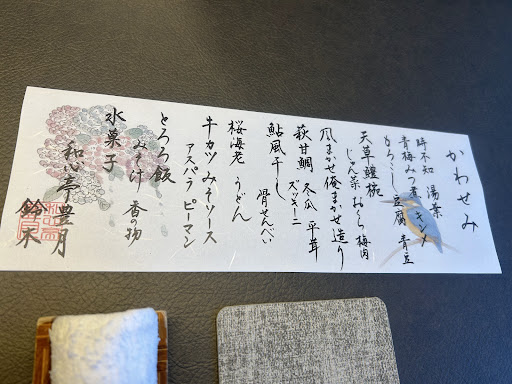 かわせみ
時不知 湯葉
青梅みつ煮 キンメ
もろこし豆腐 青豆
天草鱧椀
じゅん菜 おくら 梅肉
風まかせ俺まかせ造り
萩甘鯛 冬瓜 平茸
ズッキーニ
鮎風干し 骨せんべい
桜海老 うどん
牛カツ みそソース
アスパラ ピーマン
とろろ飯
みそ汁 香の物
水菓子
和心亭豊月
鈴木